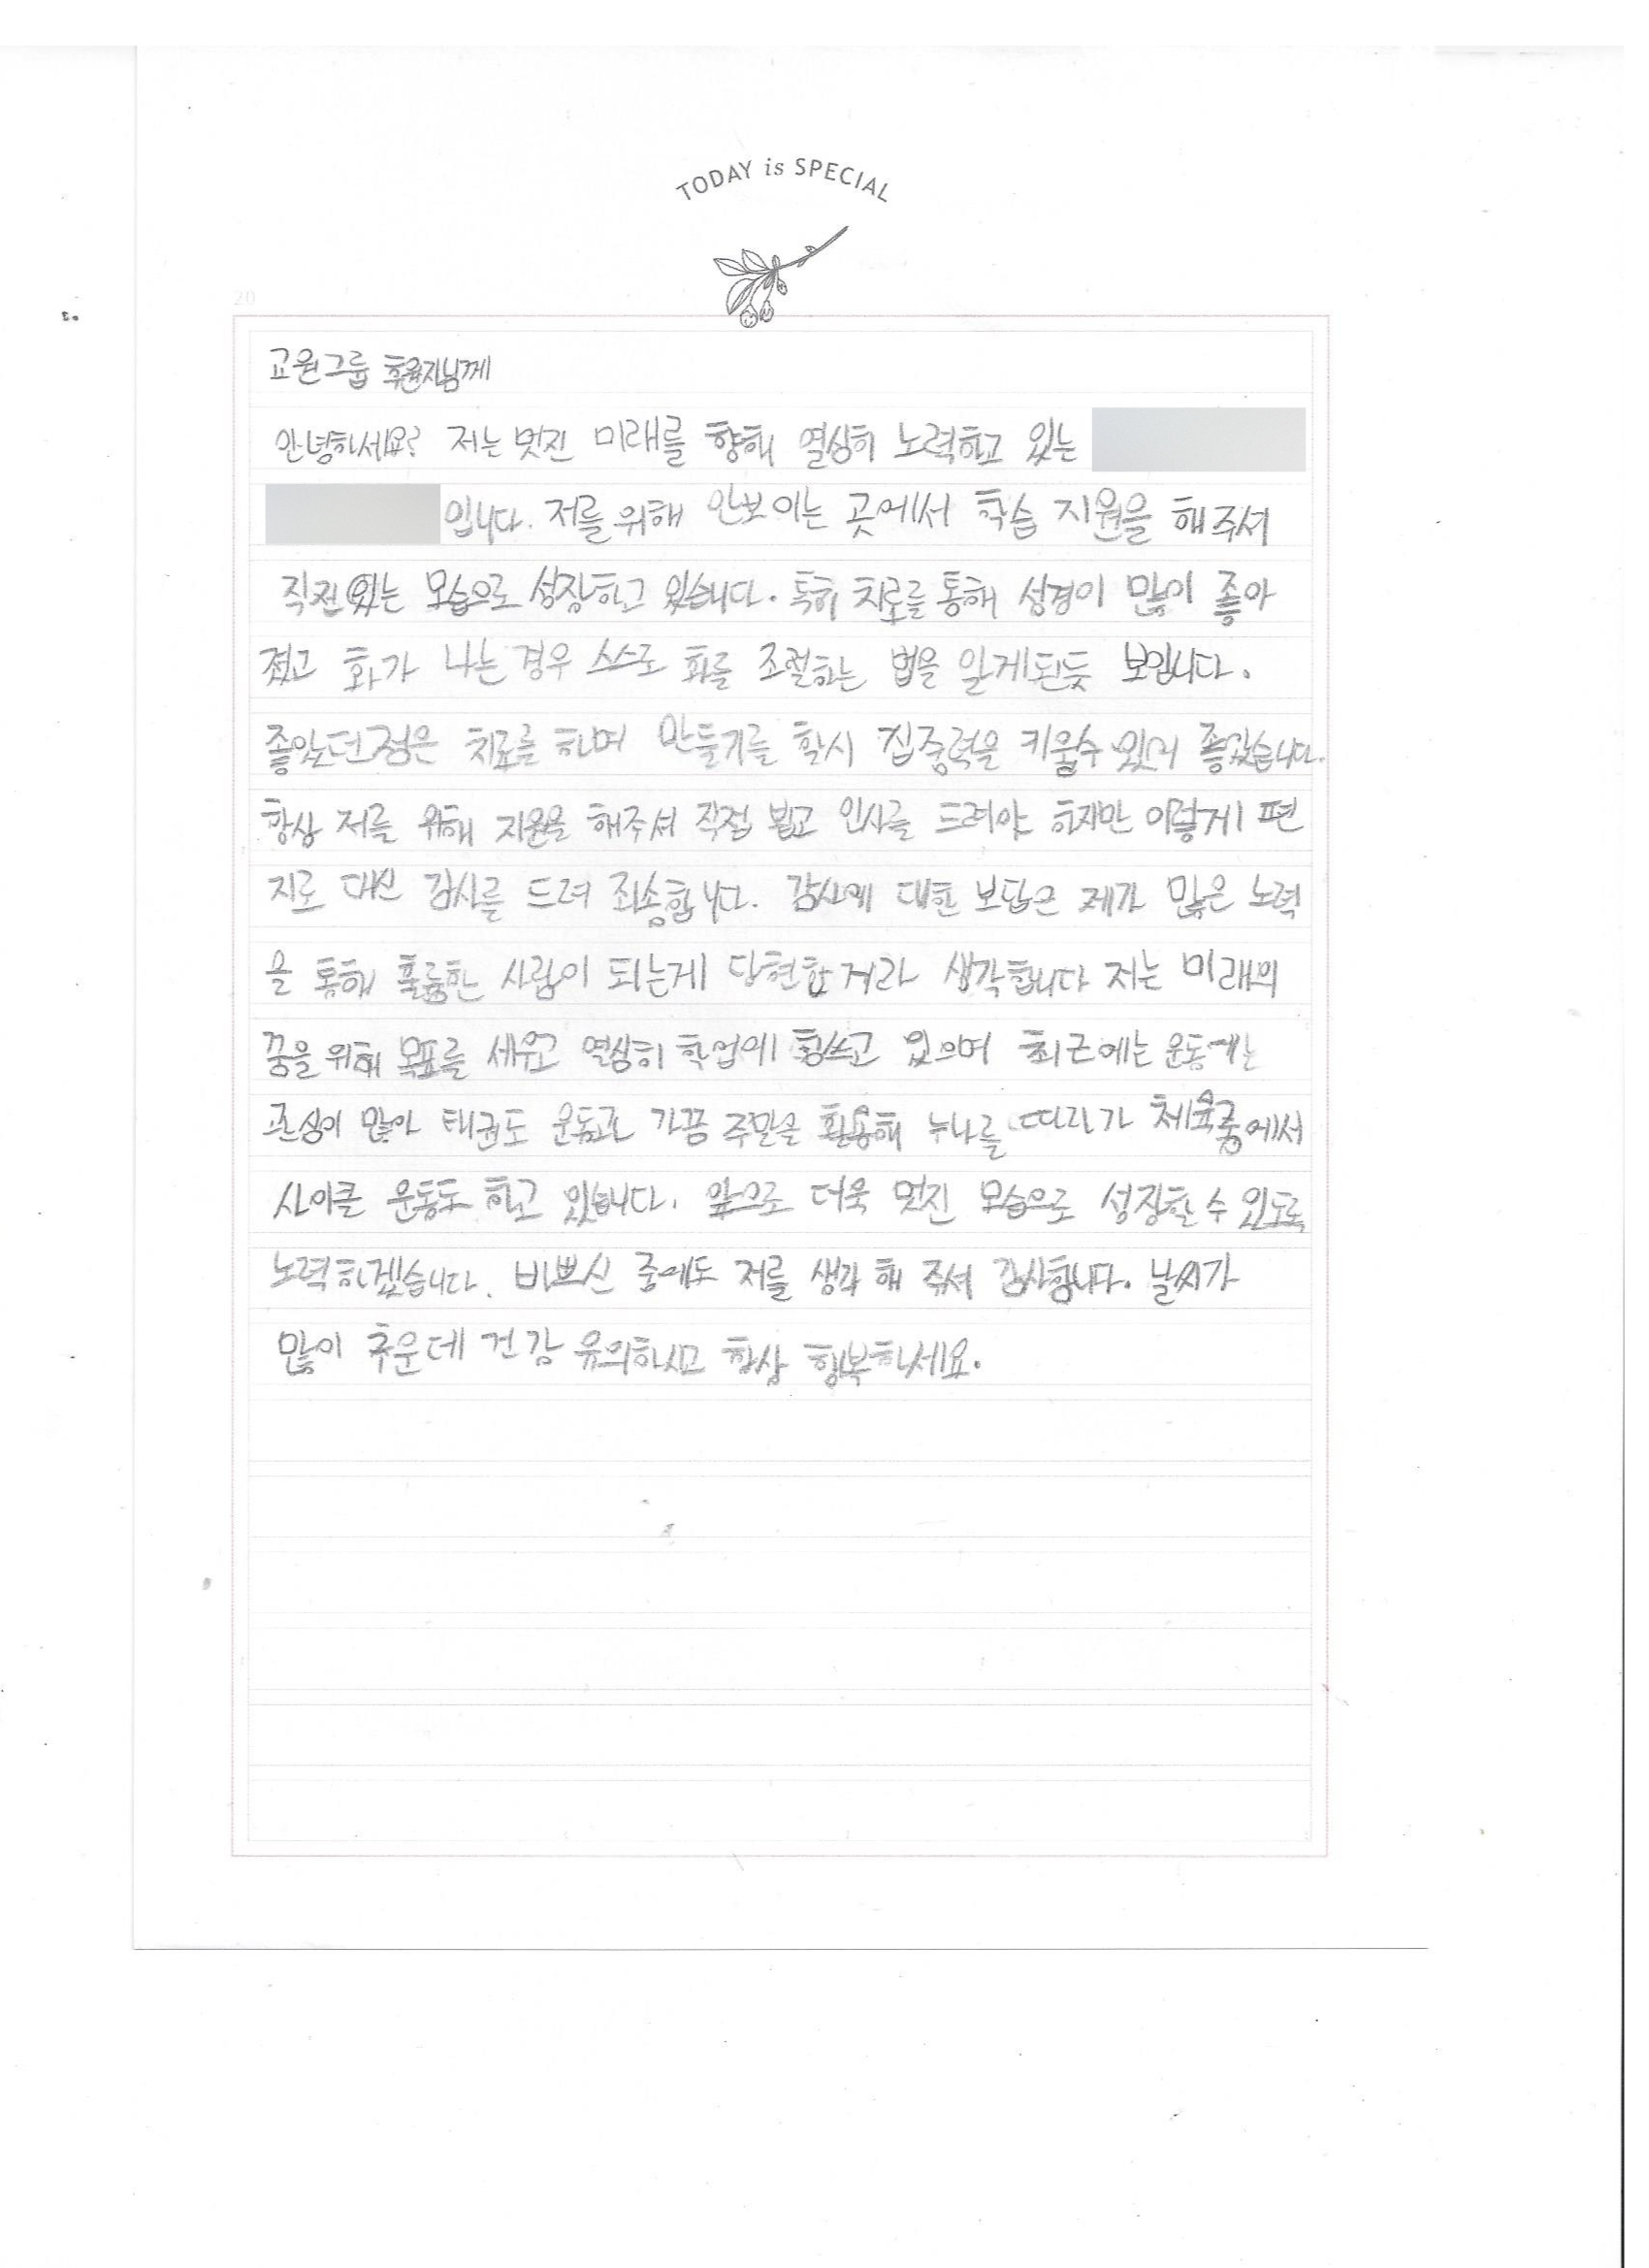 TODAY is SPECIAL
20
교원그룹 후원자님께
안녕하세요? 저는 멋진 미래를 향해 열심히 노력하고 있는
입니다. 저를 위해 안보이는 곳에서 학습 지원을 해주셔
직전있는 모습으로 성장하고 있습니다. 특히 치료를 통해 성격이 많이 좋아
졌고 화가 나는 경우 스스로 화를 조절하는 법을 알게된듯 보입니다.
좋았던점은 치료를 하며 만들기를 할시 집중력을 키울수 있어 좋았습니다.
항상 저를 위해 지원을 해주셔 직접 뵙고 인사를 드려야 하지만 이렇게 편
지로 대신 감사를 드려 죄송합니다. 감사에 대한 보답은 제가 많은 노력
을 통해 훌륭한 사람이 되는게 합 거라 생각합니다 저는 미래의
꿈을 위해 목표를 세우고 열심히 학업에 힘쓰고 있으며 최근에는 운동에는
관심이 많아 태권도 운동과 가끔 주말을 활용해 누나를 따라가 체육 에서
사이클 운동도 하고 있습니다. 앞으로 더욱 멋진 모습으로 성장할 수 있도록
노력하겠습니다. 바쁘신 중에도 저를 생각 해 주셔 감사합니다. 날씨가
많이 추운데 건강 유의하시고 항상 행복하세요.